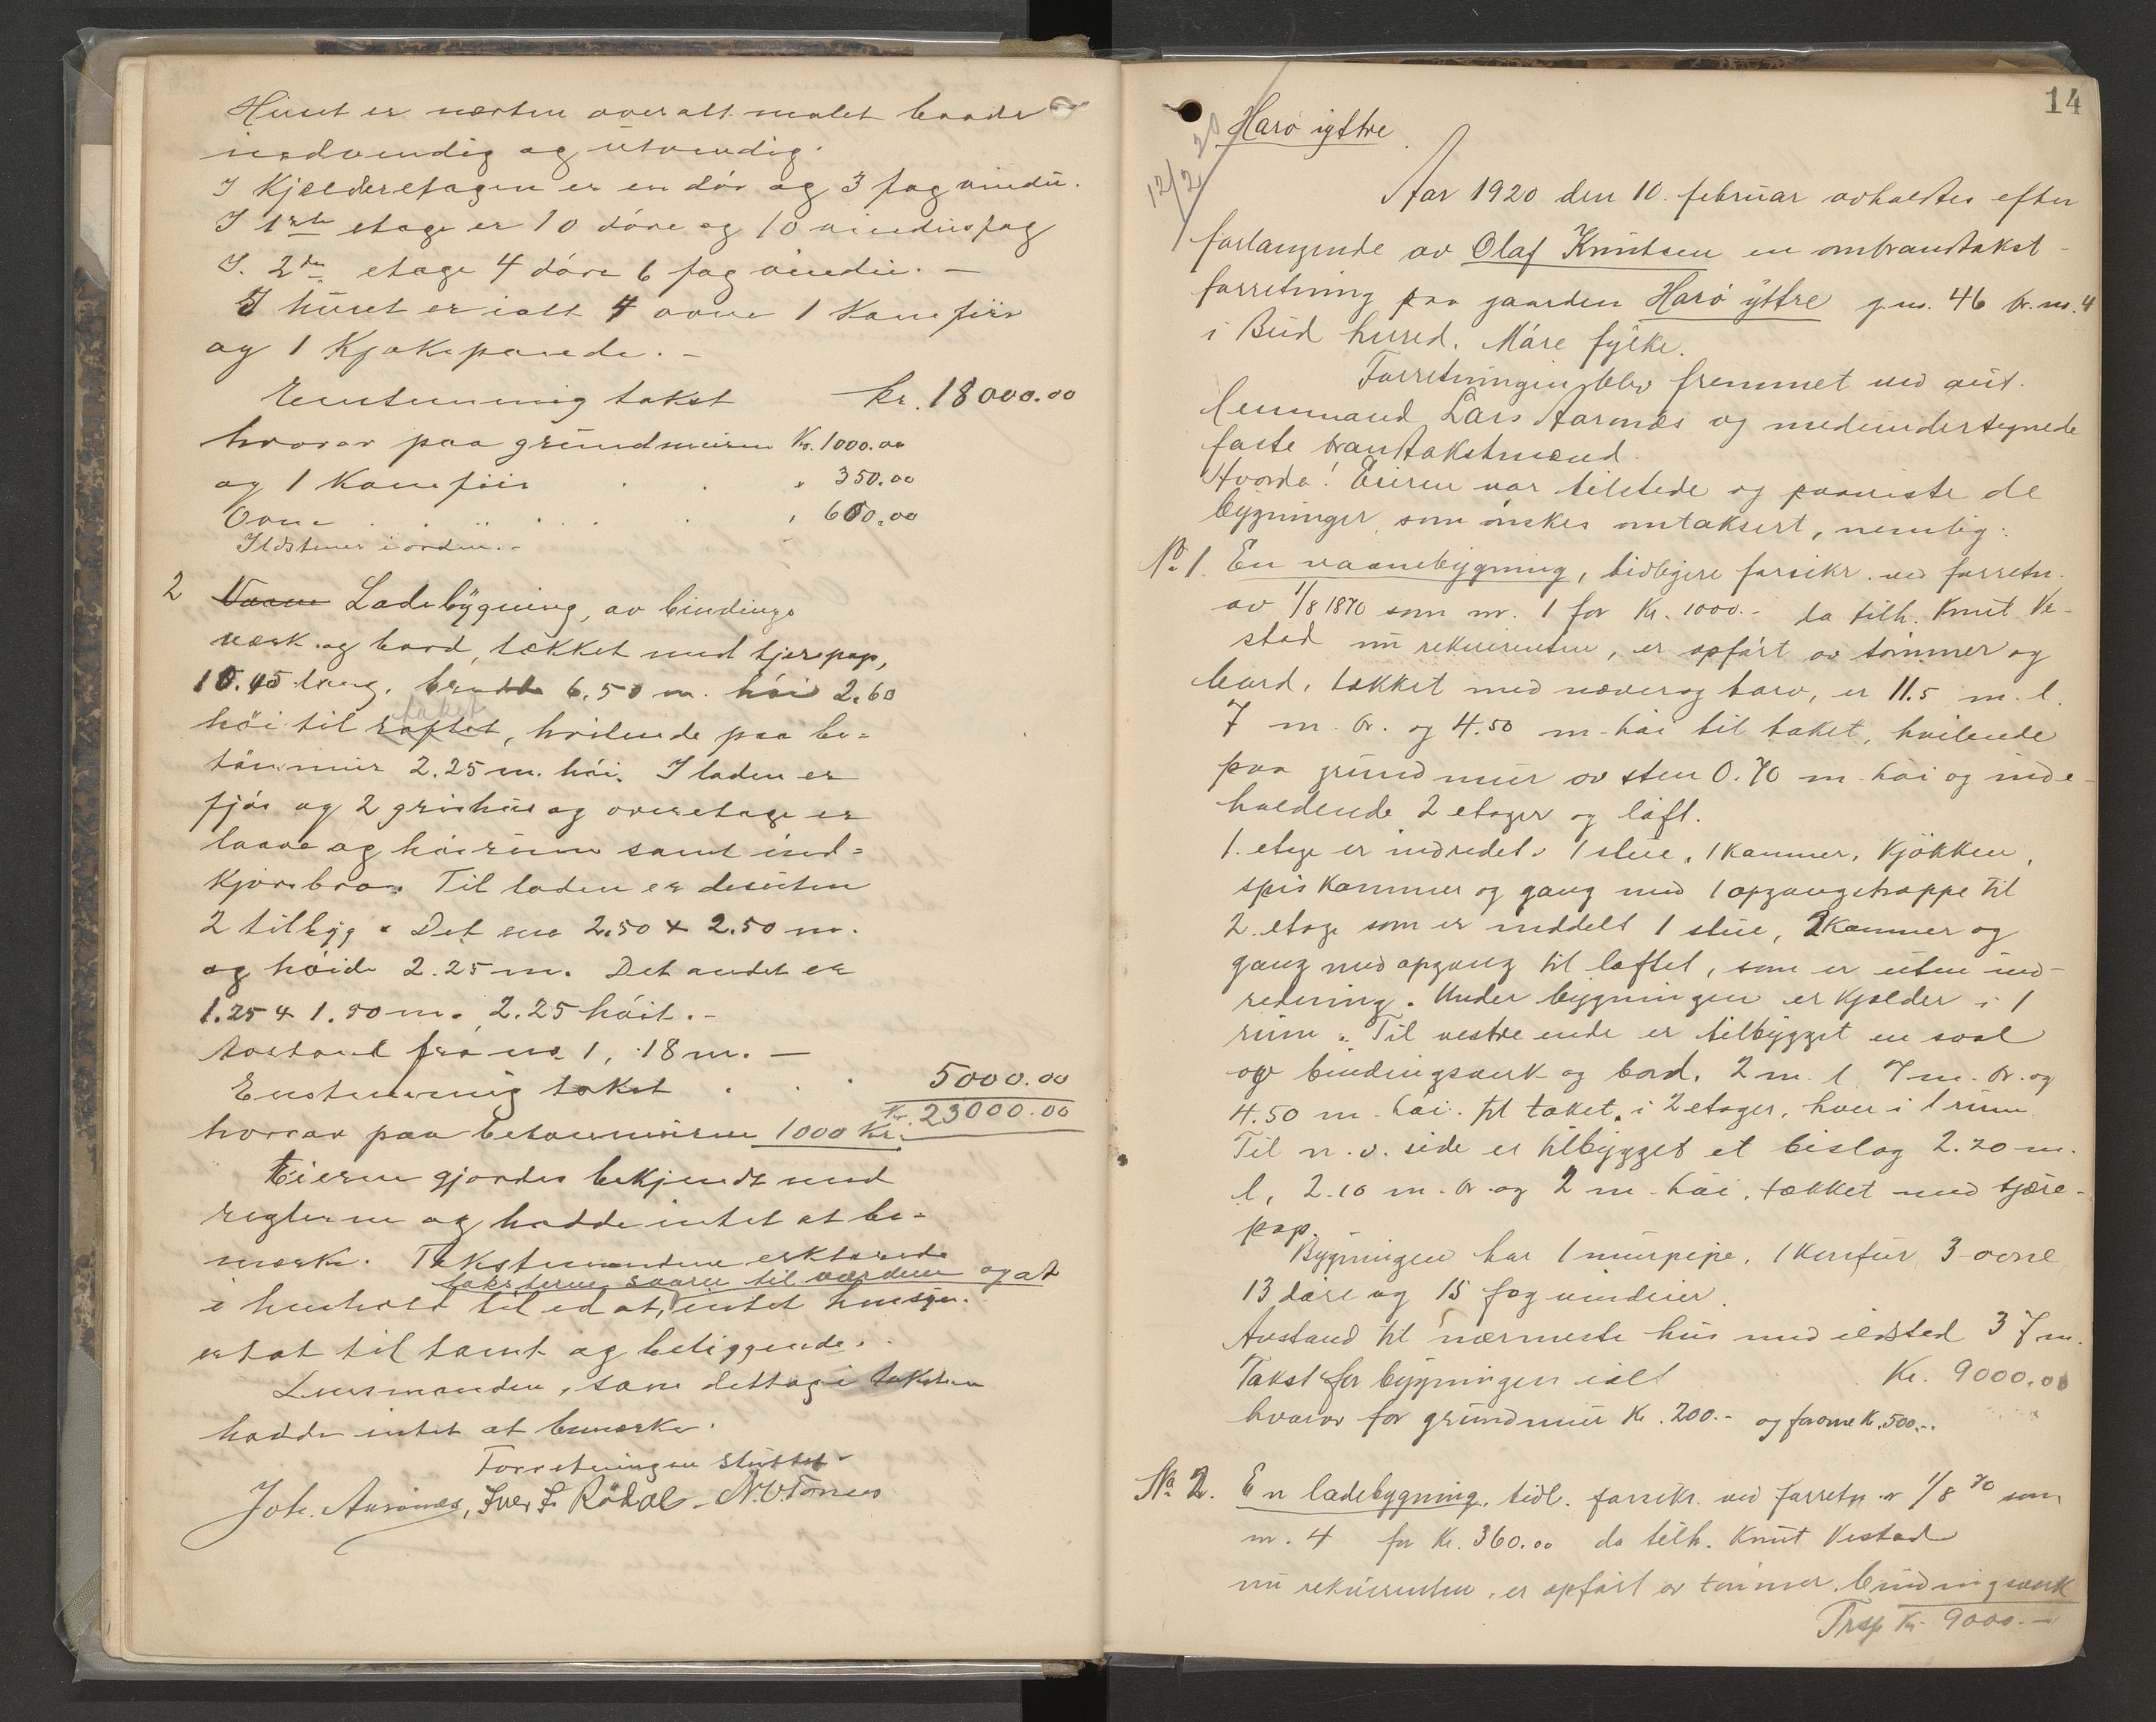 Huset er næsten overalt malet baade
indvendig og utvendig.
I Kjælderetagen er en dör og 3 fag vindu.
I 1ste etage er 10 döre og 10 vindusfag
I. 2den etage 4 döre 6 fag vindu. —
I huset er ialt 4 ovne 1 Komfiir
og 1 Kjøkepande. —
Enstemmig takst kr. 18000.00
hvorav paa grundmuren Kr. 1000.00
og 1 Komfiir . . " 350.00
Ovne . . . . . . " 600.00
Ildstener i orden. -
2 Vaane Ladebÿgning, av bindings
værk og bord, tækket med tjærepap,
10.45 lang, bredde 6.50 m. höi 2.60
taket
höi til raftet, hvilende paa be=
tönmur 2.25 m. höi. I laden er
fjös og 2 grishus og overetage er
laave og höirum samt ind=
kjörsbro. Til laden er desuten
2 tilbÿg. Det ene 2.50 x 2.50 m.
og höide 2.25 m. Det andet er
1.25 x 1.50 m. 2.25 höit. -
Avstand fra no 1, 18 m. —
Enstemmig takst . . . 5000.00
Kr. 23000.00
hvorav paa betonmuren 1000 Kr.
Eieren gjordes bekjendt med
reglerne og hadde intet at be=
mærke. Takstmændene erklærede
taksterne svarer til værdien og at
i henhold til ed at intet hensyn
er tat til tomt og beliggende.
Lensmanden, som deltog i taksten
hadde intet at bemærke.
Forretningen sluttet
Joh. Aurönes, Iver L. Rödal N. V. Tornes
14
12/2 20
Harö ÿttre
Aar 1920 den 10. februar avholdtes efter
forlangende av Olaf Knutsen en ombrandtakst-
forretning paa gaarden Harö ÿttre g.no. 46 br.no. 4
i Bud herred, Möre fÿlke.
Forretningen blev fremmet ved aut.
lensmand Lars Aarönes og medundertegnede
faste brandtakstmænd.
Hvorda! Eieren var tilstede og paaviste de
bÿgninger, som önskes omtaksert, nemlig:
No. 1. En vaanebÿgning, tidligere forsikr. ved forretn.
av 1/8 1870 som nr. 1 for Kr. 1000.- da tilh. Knut Ve-
stad nu rekvirenten, er opfört av tömmer og
bord, tækket med næver og torv, er 11.5 m. l.
7 m. br. og 4.50 m. höi til taket, hvilende
paa grundmur av sten 0.70 m. höi og inde-
holdende 2 etager og loft.
1. etage er indredet: 1 stue, 1 kammer, Kjökken,
spiskammer og gang med 1 opgangstrappe til
2. etage som er inddelt 1 stue, 2 kammer og
gang med opgang til loftet, som er uten ind-
redning. Under bÿgningen er kjælder i 1
rum. Til vestre ende er tilbÿgget en sval
av bindingsverk og bord, 2 m. l 7 m. br. og
4.50 m. höi til taket, i 2 etager, hver i 1 rum
Til n. v. side er tilbÿgget et bislag 2.20 m.
l, 2.10 m. br. og 2 m. höi, tækket med tjære-
pap.
Bÿgningen har 1 murpipe, 1 komfur 3 ovne
13 döre og 15 fag vinduer.
Avstand til nærmeste hus med ildsted 37 m.
Takst for bÿgningen ialt Kr. 9000.00
hvorav for grundmur Kr. 200.- og for ovne Kr. 500.-
No. 2. En ladebygning, tidl. forsikr. ved forretn. av 1/8 70 som
nr. 4 for Kr. 360.00 da tilh. Knut Vestad
nu rekvirenten, er opfört av tömmer, bindingsverk
Trsp Kr. 9000.—